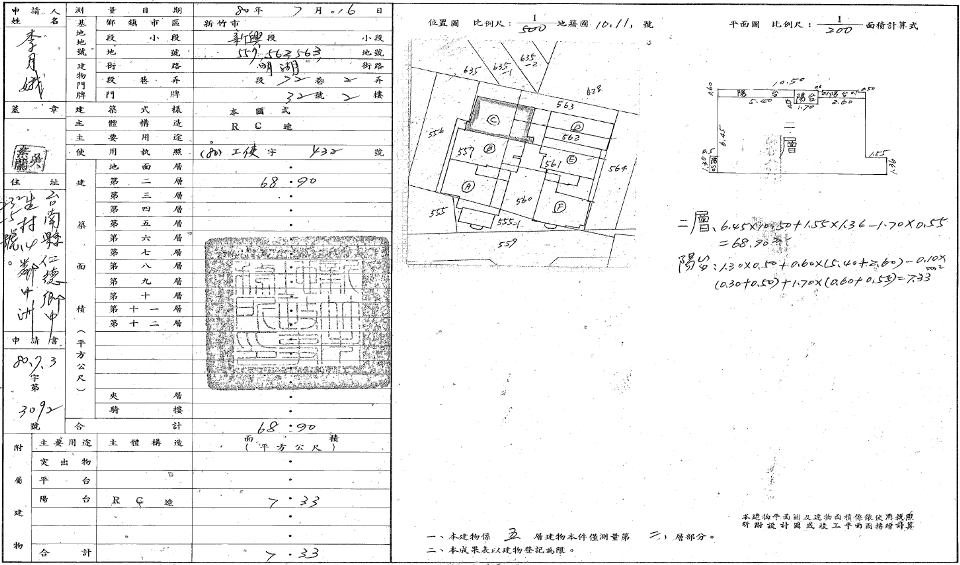 申請人姓名
李月娥
蓋章
住址
台南縣仁德鄉中
生村14鄰中洲
號。
申請書
80.7.3
字第
3092
號
測量日期 80年7月16日
基地地號
鄉鎮市區 新竹市
段小段 新學段 小段
地號 559,562,563 地號
建物門牌
街路 明湖 街路
段巷弄 段32巷2弄
門牌 32號2樓
建築式樣 本國式
主體構造 RC造
主要用途
使用執照 (80)工使字 432 號
建築面積(平方公尺)
地面層
第二層 68.90
第三層
第四層
第五層
第六層
第七層
第八層
第九層
第十層
第十一層
第十二層
夾層
騎樓
合計 68.90
附屬建物
主要用途 主體構造 面積(平方公尺)
突出物
平台
陽台 RC造 7.33
合計 7.33
位置圖 比例尺:1/500 地籍圖10.11,號
635
635-1
635-2
628
563
556
C
D
562
557
B
561
E
564
A
560
F
555
555-1
559
平面圖 比例尺:1/200 面積計算式
10.50
0.60
陽台
5.40
陽台
1.70
陽台
2.60
0.50
6.45
二層
1.55
1.36
1.30
陽台
二層:6.45×10.50+1.55×1.36-1.70×0.55
=68.90
陽台:1.30×0.50+0.60×(5.40+2.60)-0.10×
(0.30+0.50)+1.70×(0.60+0.55)=7.33
本建物平面圖及建物面積係依使用執照
所附設計圖或竣工平面圖轉繪計算
一、本建物係 五 層建物本件僅測量第 二 層部分。
二、本成果表以建物登記為限。